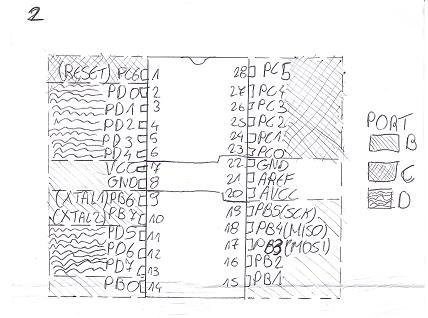 2
(RESET) PC6 1 28 PC5
PD0 2 27 PC4
PD1 3 26 PC3
PD2 4 25 PC2
PD3 5 24 PC1
PD4 6 23 PC0
VCC 7 22 GND
GND 8 21 AREF
(XTAL1) PB6 9 20 AVCC
(XTAL2) PB7 10 19 PB5(SCK)
PD5 11 18 PB4(MISO)
PD6 12 17 PB3(MOSI)
PD7 13 16 PB2
PB0 14 15 PB1
PORT
B
C
D